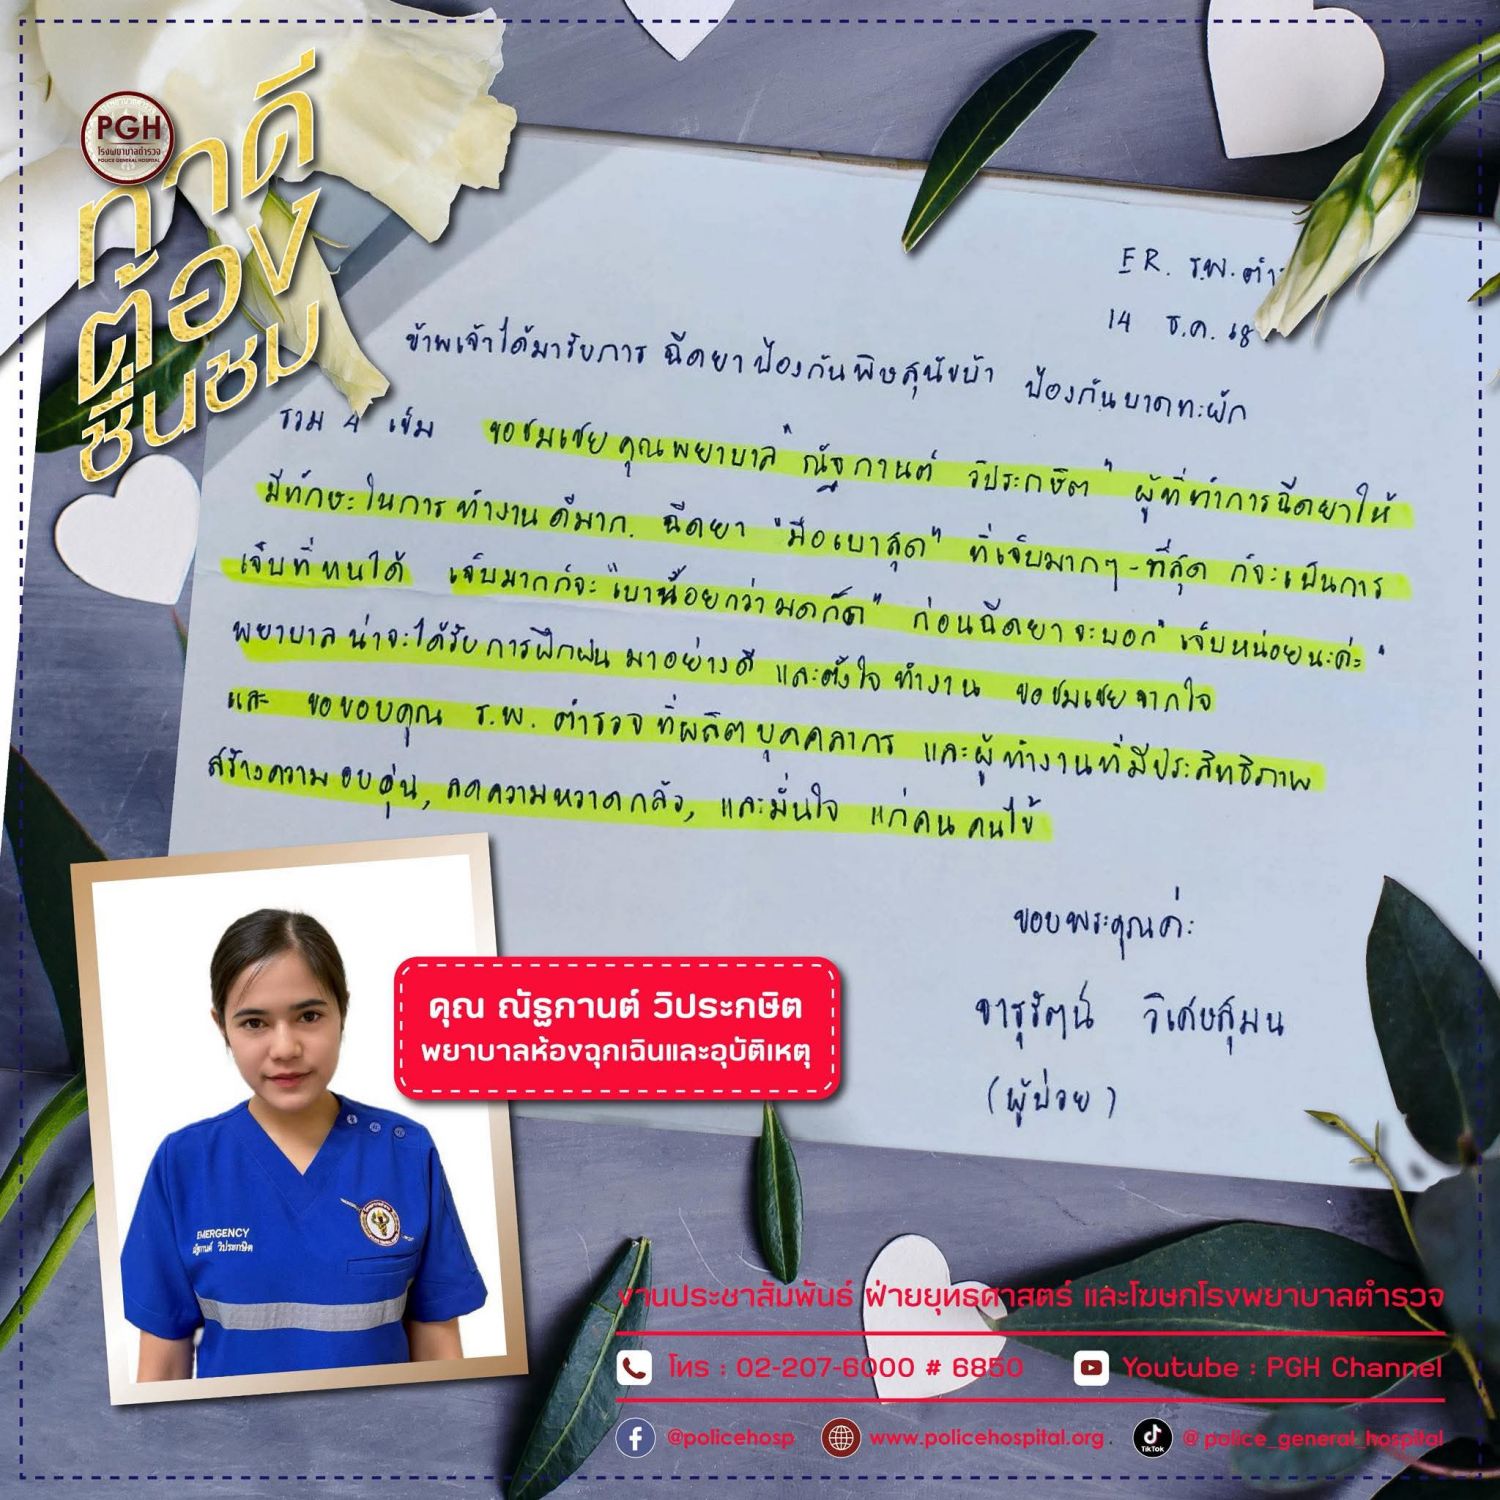 PGH
โรงพยาบาลตำรวจ
POLICE GENERAL HOSPITAL
ทำดี
ต้อง
ชื่นชม
ER. ร.พ. ตำ
14 ธ.ค. 68
ข้าพเจ้าได้มารับการ ฉีดยาป้องกันพิษสุนัขบ้า ป้องกันบาดทะยัก
รวม 4 เข็ม ขอชมเชยคุณพยาบาล "ณัฐกานต์ วิประกษิต" ผู้ที่ทำการฉีดยาให้
มีทักษะในการทำงานดีมาก. ฉีดยา "มือเบาสุด" ที่เจ็บมากๆ-ที่สุด ก็จะเป็นการ
เจ็บที่ทนได้ เจ็บมากก็จะ "เบาน้อยกว่ามดกัด" ก่อนฉีดยาจะบอก "เจ็บหน่อยนะค่ะ"
พยาบาลน่าจะได้รับการฝึกฝนมาอย่างดี และตั้งใจทำงาน ขอชมเชยจากใจ
และ ขอขอบคุณ ร.พ. ตำรวจ ที่ผลิตบุคคลากร และผู้ทำงานที่มีประสิทธิภาพ
สร้างความอบอุ่น, ลดความหวาดกลัว, และมั่นใจ แก่คนคนไข้
ขอบพระคุณค่ะ
จารุรัตน์ วิเศษสุมน
(ผู้ป่วย)
คุณ ณัฐกานต์ วิประกษิต
พยาบาลห้องฉุกเฉินและอุบัติเหตุ
EMERGENCY
ณัฐกานต์ วิประกษิต
งานประชาสัมพันธ์ ฝ่ายยุทธศาสตร์ และโฆษกโรงพยาบาลตำรวจ
โทร : 02-207-6000 # 6850 Youtube : PGH Channel
@policehosp www.policehospital.org. TikTok @police_general_hospital